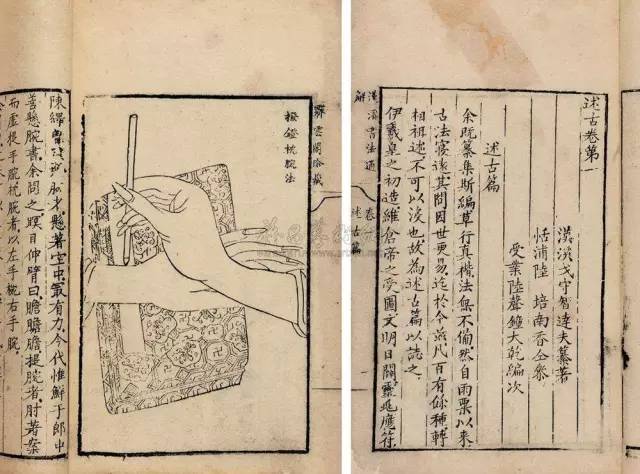 述古卷第一
漢溪戈守智達夫纂著
恬浦陸 培南香仝叅
受業陸聲鐘大乾編次
述古篇
余既纂集斯編草行真楷法無不備然自雨粟以来
古法寖遠其間因世更易迄於今茲凡百有餘種轉
相祖述不可以没也故為述古篇以誌之
伊羲皇之初造維倉帝之受圖文明日闢靈兆應符
漢溪書法通解
卷一
述古篇
霽雲閣珍藏
撥鐙枕腕法
陳繹曾 懸著空中最有力今代惟鮮于郎中
善懸腕書余問之瞑目伸臂曰膽膽膽提腕者肘著案
而虛提手腕枕腕者以左手枕右手腕